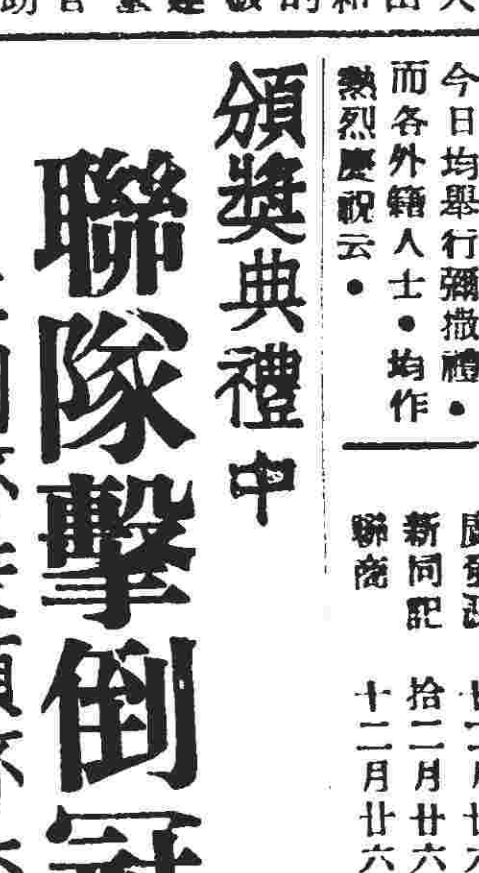 今日均舉行彌撒禮．
而各外籍人士．均作
熱烈慶祝云．
新同記 拾二月廿六
聯商 十二月廿六
頒獎典禮中
聯隊擊倒冠